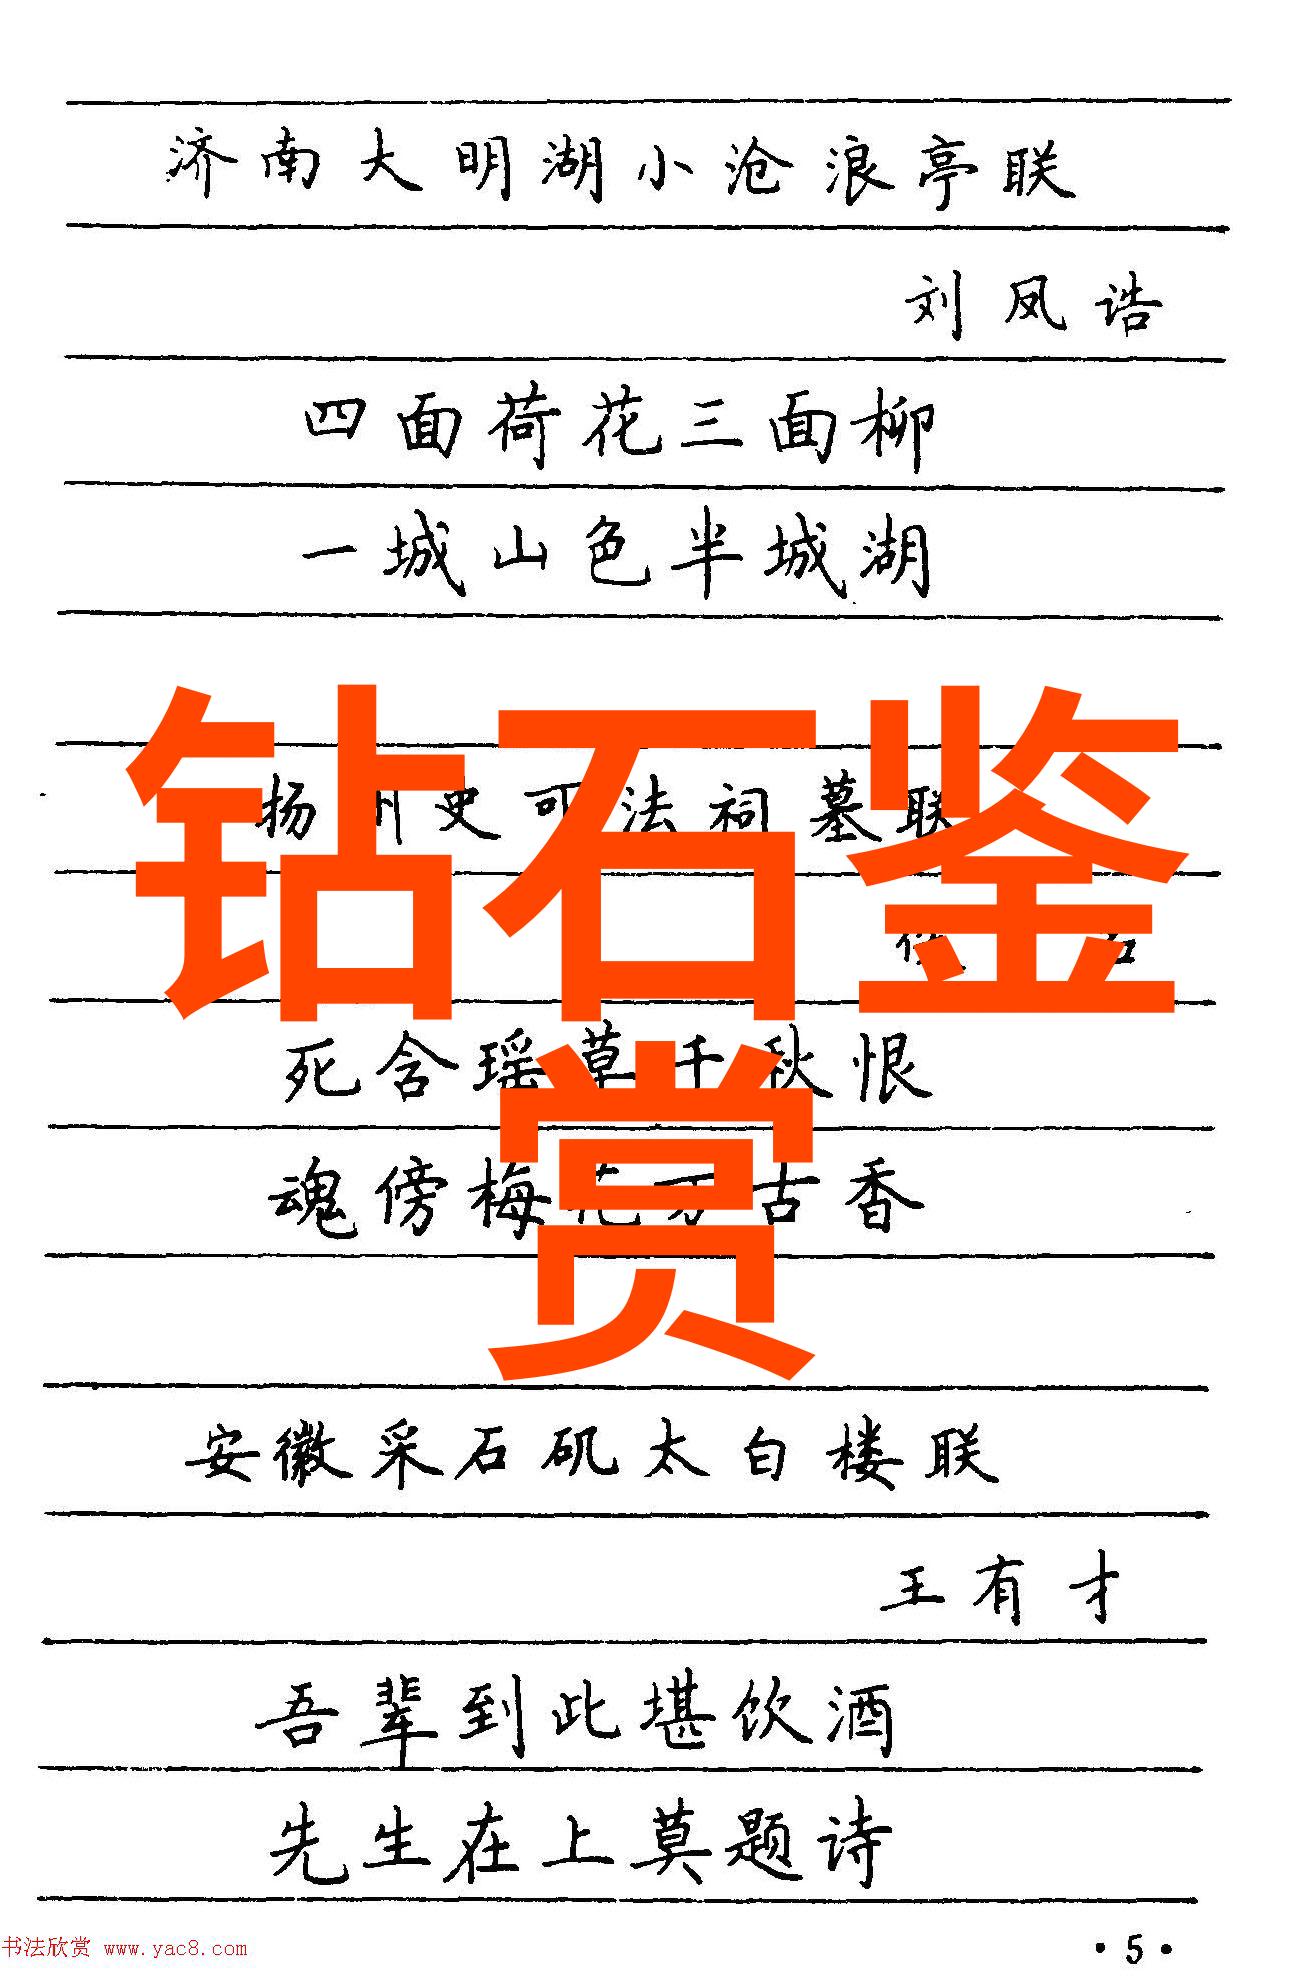 济南大明湖小沧浪亭联
刘凤诰
四面荷花三面柳
一城山色半城湖
钻石鉴赏
扬州史可法祠墓联
死含瑶草千秋恨
魂傍梅花万古香
安徽采石矶太白楼联
王有才
吾辈到此堪饮酒
先生在上莫题诗
书法欣赏 www.yac8.com
·5·